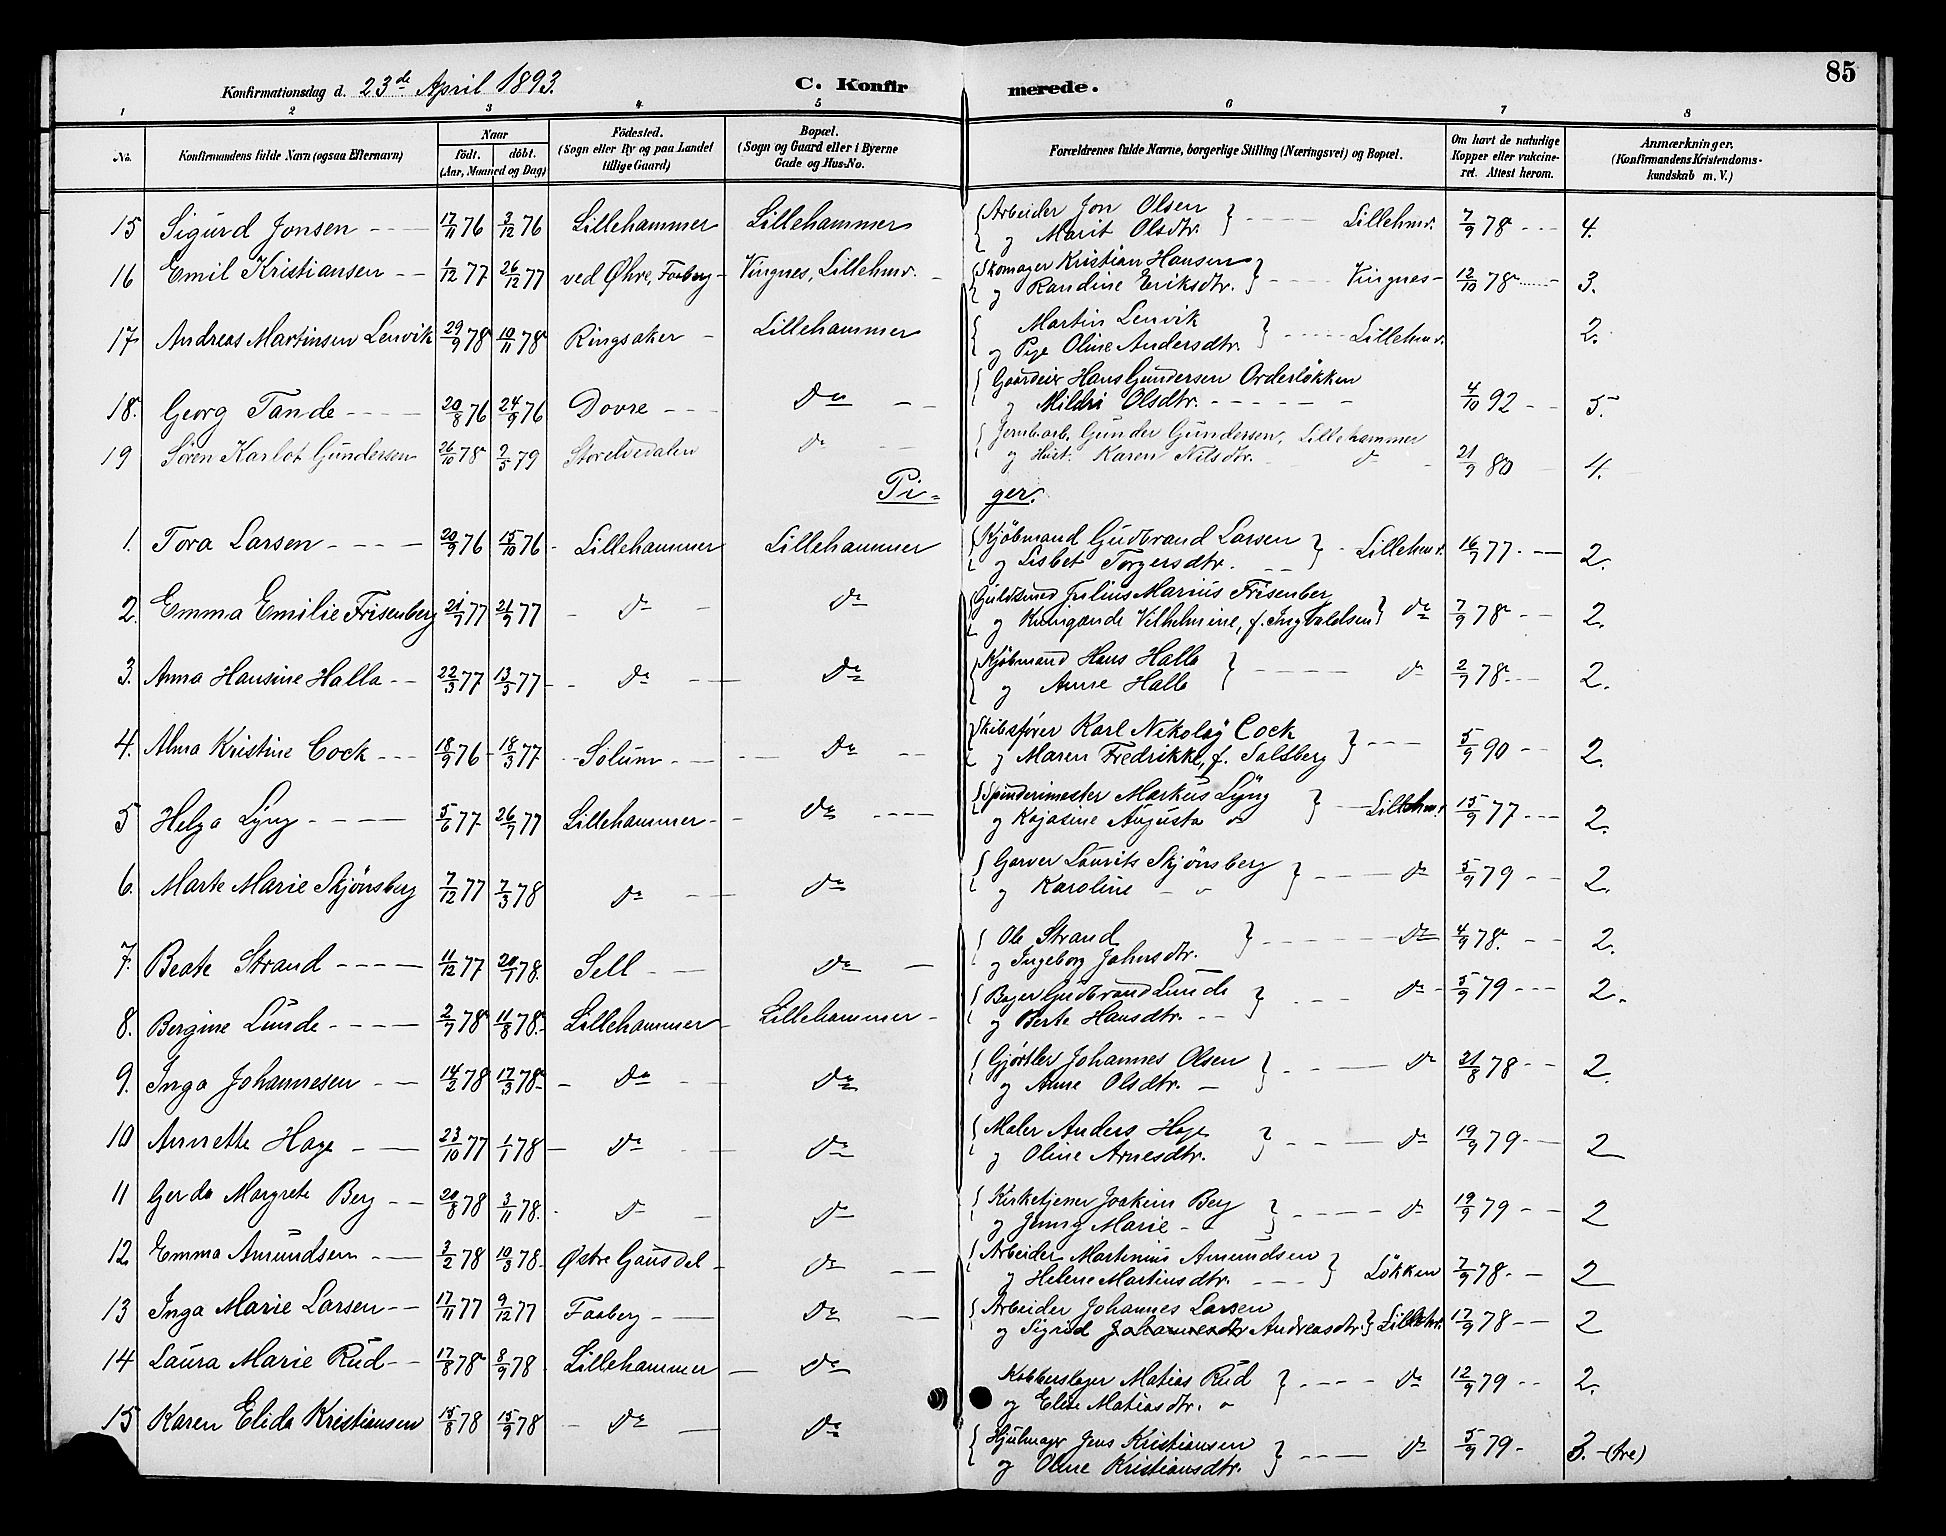 85
Konfirmationsdag d. 23de April 1893.
C. Konfirmerede.
1 2 3 4 5 6 7 8
No.
Konfirmandens fulde Navn (ogsaa Efternavn)
Naar
födt. döbt.
(Aar, Maaned og Dag)
Födested.
(Sogn eller By og paa Landet
tillige Gaard)
Bopæl.
(Sogn og Gaard eller i Byerne
Gade og Hus-No.
Forældrenes fulde Navne, borgerlige Stilling (Næringsvei) og Bopæl.
Om havt de naturlige
Kopper eller vakcine-
ret. Attest herom.
Anmærkninger.
(Konfirmandens Kristendoms-
kundskab m. V.)
15 Sigurd Jonsen 17/11 76 3/12 76 Lillehammer Lillehammer Arbeider Jon Olsen Lillehmr. 7/9 78 4.
og Marit Olsdtr.
16 Emil Kristiansen 1/12 77 26/12 77 ved Øhre, Faaberg Vingnes, Lillehmr. Skomager Kristian Hansen Vingnes 12/10 78 3.
og Randine Eriksdtr.
17 Andreas Martinsen Lenvik 29/9 78 10/11 78 Ringsaker Lillehammer Martin Lenvik Lillehmr. 2.
og Pige Oline Andersdtr.
18. Georg Tande 20/8 76 24/9 76 Dovre Do Gaardeier Hans Gundersen Orderløkken 4/10 92 5.
og Mildri Olsdtr.
19 Søren Karlot Gundersen 26/10 78 2/5 79 Storelvedalen do Jernb.arb. Gunder Gundersen, Lillehammer 21/9 80 4.
og Hust. Karen Nilsdtr. do
Piger.
1. Tora Larsen 20/9 76 15/10 76 Lillehammer Lillehammer Kjøbmand Gudbrand Larsen Lillehmr. 16/9 77 2.
og Lisbet Torgersdtr.
2. Emma Emilie Frisenberg 21/7 77 21/9 77 do do Guldsmed Julius Marius Frisenberg do 7/9 78 2.
og Kunigunde Vilhelmine, f. Ingvaldsen
3. Anna Hansine Halla 22/3 77 13/5 77 do do Kjøbmand Hans Halla do 2/9 78 2.
og Anne Halla
4. Alma Kristine Cock 18/9 76 18/3 77 Solum do Skibsfører Karl Nikolay Cock 5/9 90 2.
og Maren Fredrikke, f. Salsberg
5 Helga Lyng 5/6 77 26/9 77 Lillehammer do Spinderimester Markus Lyng Lillehmr. 15/9 77 2.
og Kajasine Augusta do
6. Marte Marie Skjønsberg 7/12 77 7/3 78 do do Garver Laurits Skjønsberg do 5/9 79 2.
og Karoline
7. Beate Strand 11/12 77 20/1 78. Sell do Ole Strand do 4/9 78. 2.
og Ingeborg Johnsdtr.
8. Bergine Lunde 2/7 78 11/8 78. Lillehammer Lillehammer Bager Gudbrand Lunde do 5/9 79 2.
og Berte Hansdtr.
9. Inga Johannesen 14/2 78 17/3 78 do do Gjørtler Johannes Olsen do 21/8 78 2.
og Anne Olsdtr.
10 Annette Hage 23/10 77 1/1 78 do do Maler Anders Hage do 19/9 79 2
og Oline Arnesdtr.
11 Gerda Margrete Berg 20/8 78 3/11 78. do do Kirketjener Joakim Berg do 19/9 79 2
og Jenny Marie
12. Emma Amundsen 3/2 78 10/3 78 Østre Gausdal do Arbeider Martinius Amundsen Løkken 7/9 78 2
og Helene Martinsdtr.
13 Inga Marie Larsen 17/11 77 9/12 77 Faaberg do Arbeider Johannes Larsen Lillehr. 17/9 78 2
og Sigrid Johannesdtr Andreasdtr.
14 Laura Marie Rud 17/8 78 8/9 78 Lillehammer do Kobberslager Matias Rud do 12/9 79 2.
og Elise Matiasdtr.
15 Karen Elida Kristiansen 15/8 78 15/9 78 do do Hjulmager Jens Kristiansen do 5/9 79 3. (tre)
og Oline Kristiansdtr.